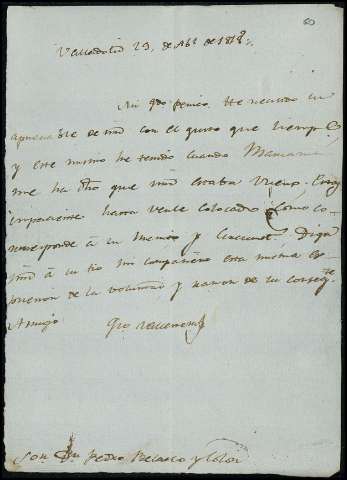 60
Valladolid 23, de Abl de 1818.,
Mi qdo Perico. He recivido la
apreciable de vmd con el gusto que siempre
y este mismo he tenido cuando
me ha dho que vmd estaba bueno. Estoy
impaciente hasta verle colocado como co-
rresponde á su merito y
vmd á su tio mi compañero esta misma es-
presion de la voluntad y mande de su
Amigo.
Sor. Dn Pedro Velasco y Colon